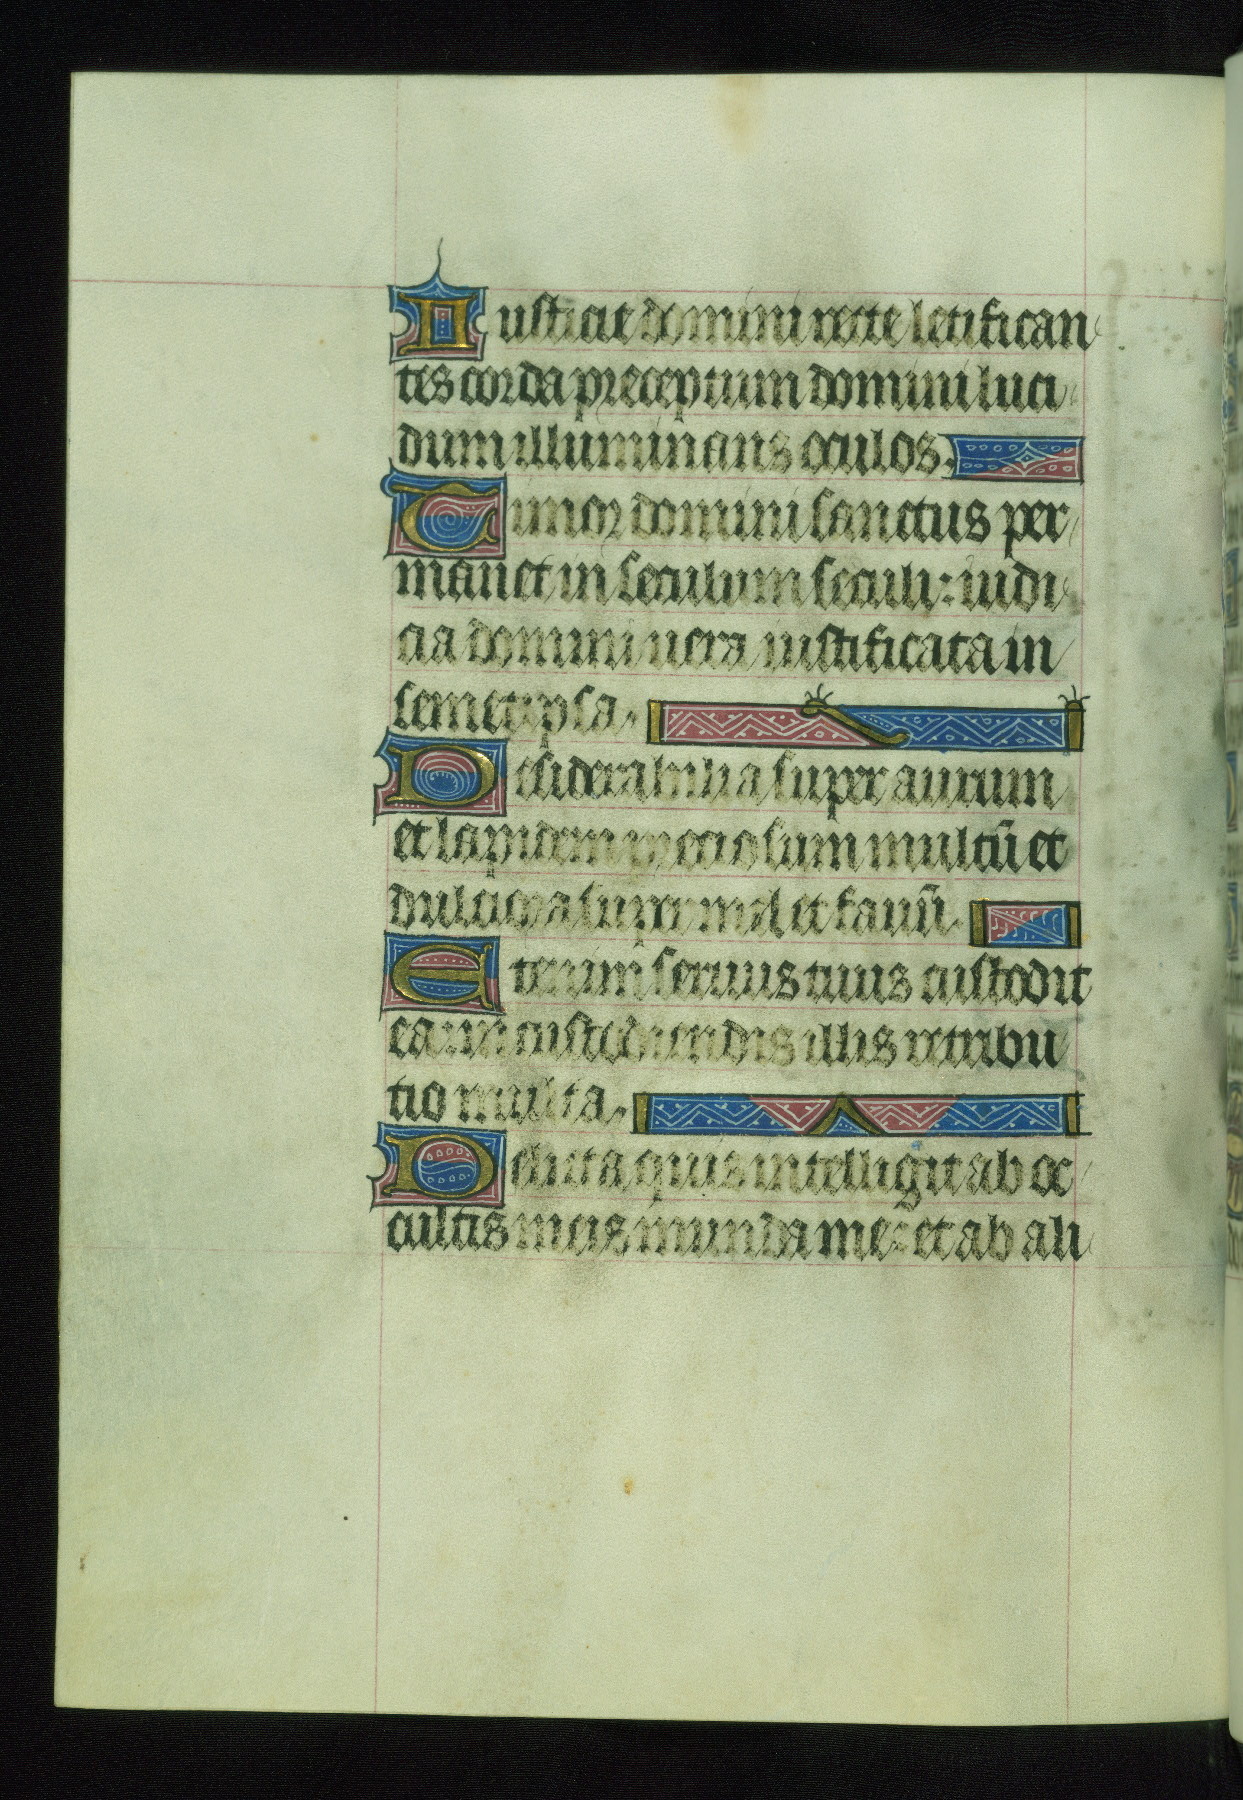 Iusticie domini recte letifican
tes corda preceptum domini luci
dum illuminans oculos.
Timor domini sanctus per
manet in seculum seculi: iudi
cia domini uera iustificata in
semetipsa.
Desiderabilia super aurum
et lapidem preciosum multū et
dulciora super mel et fauū.
Etenim seruus tuus custodit
ea: in custodiendis illis retribu
tio multa.
Delicta quis intelligit ab oc
cultis meis munda me: et ab ali